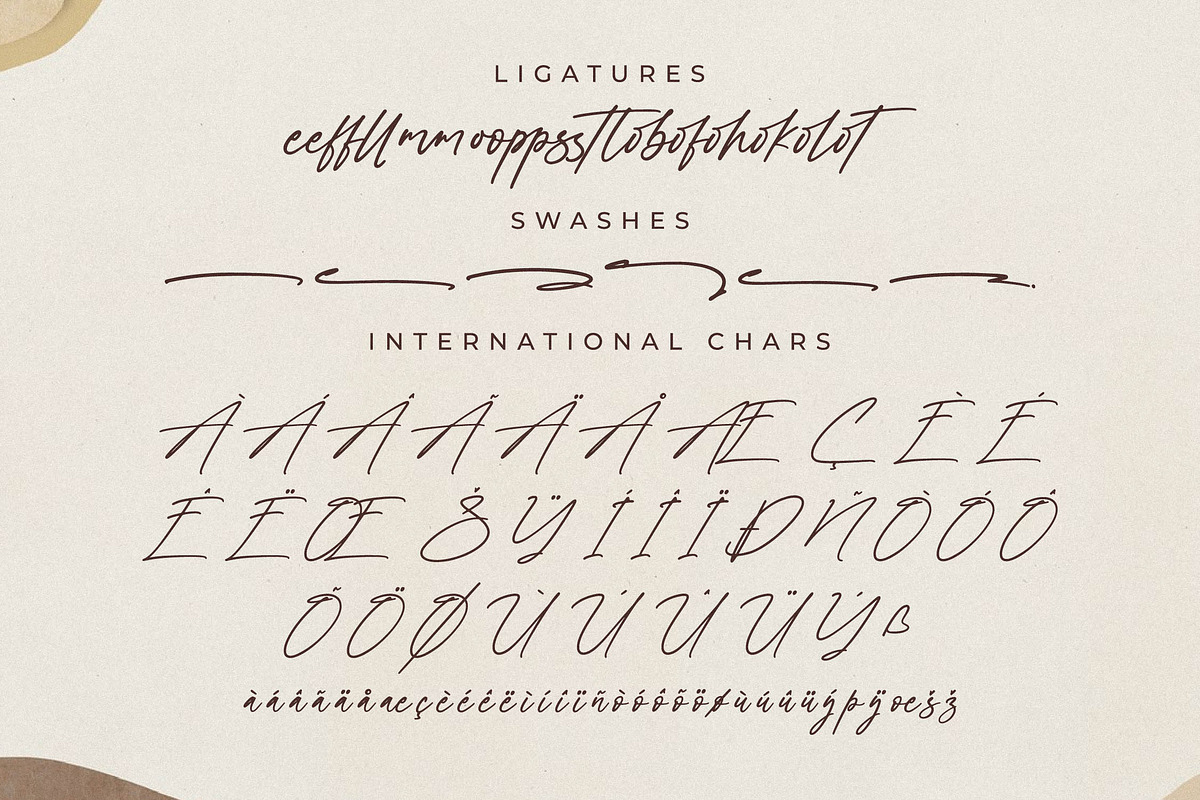 LIGATURES
eeffllmmooppssttlobofohokolot
SWASHES
INTERNATIONAL CHARS
ÀÁÂÃÄÅÆÇÈÉ
ÊËŒŠŸÍÎÏÐÑÒÓÔ
ÕÖØÙÚÛÜÝß
àáâãäåæçèéêëìíîïñòóôõöøùúûüýþÿœšž